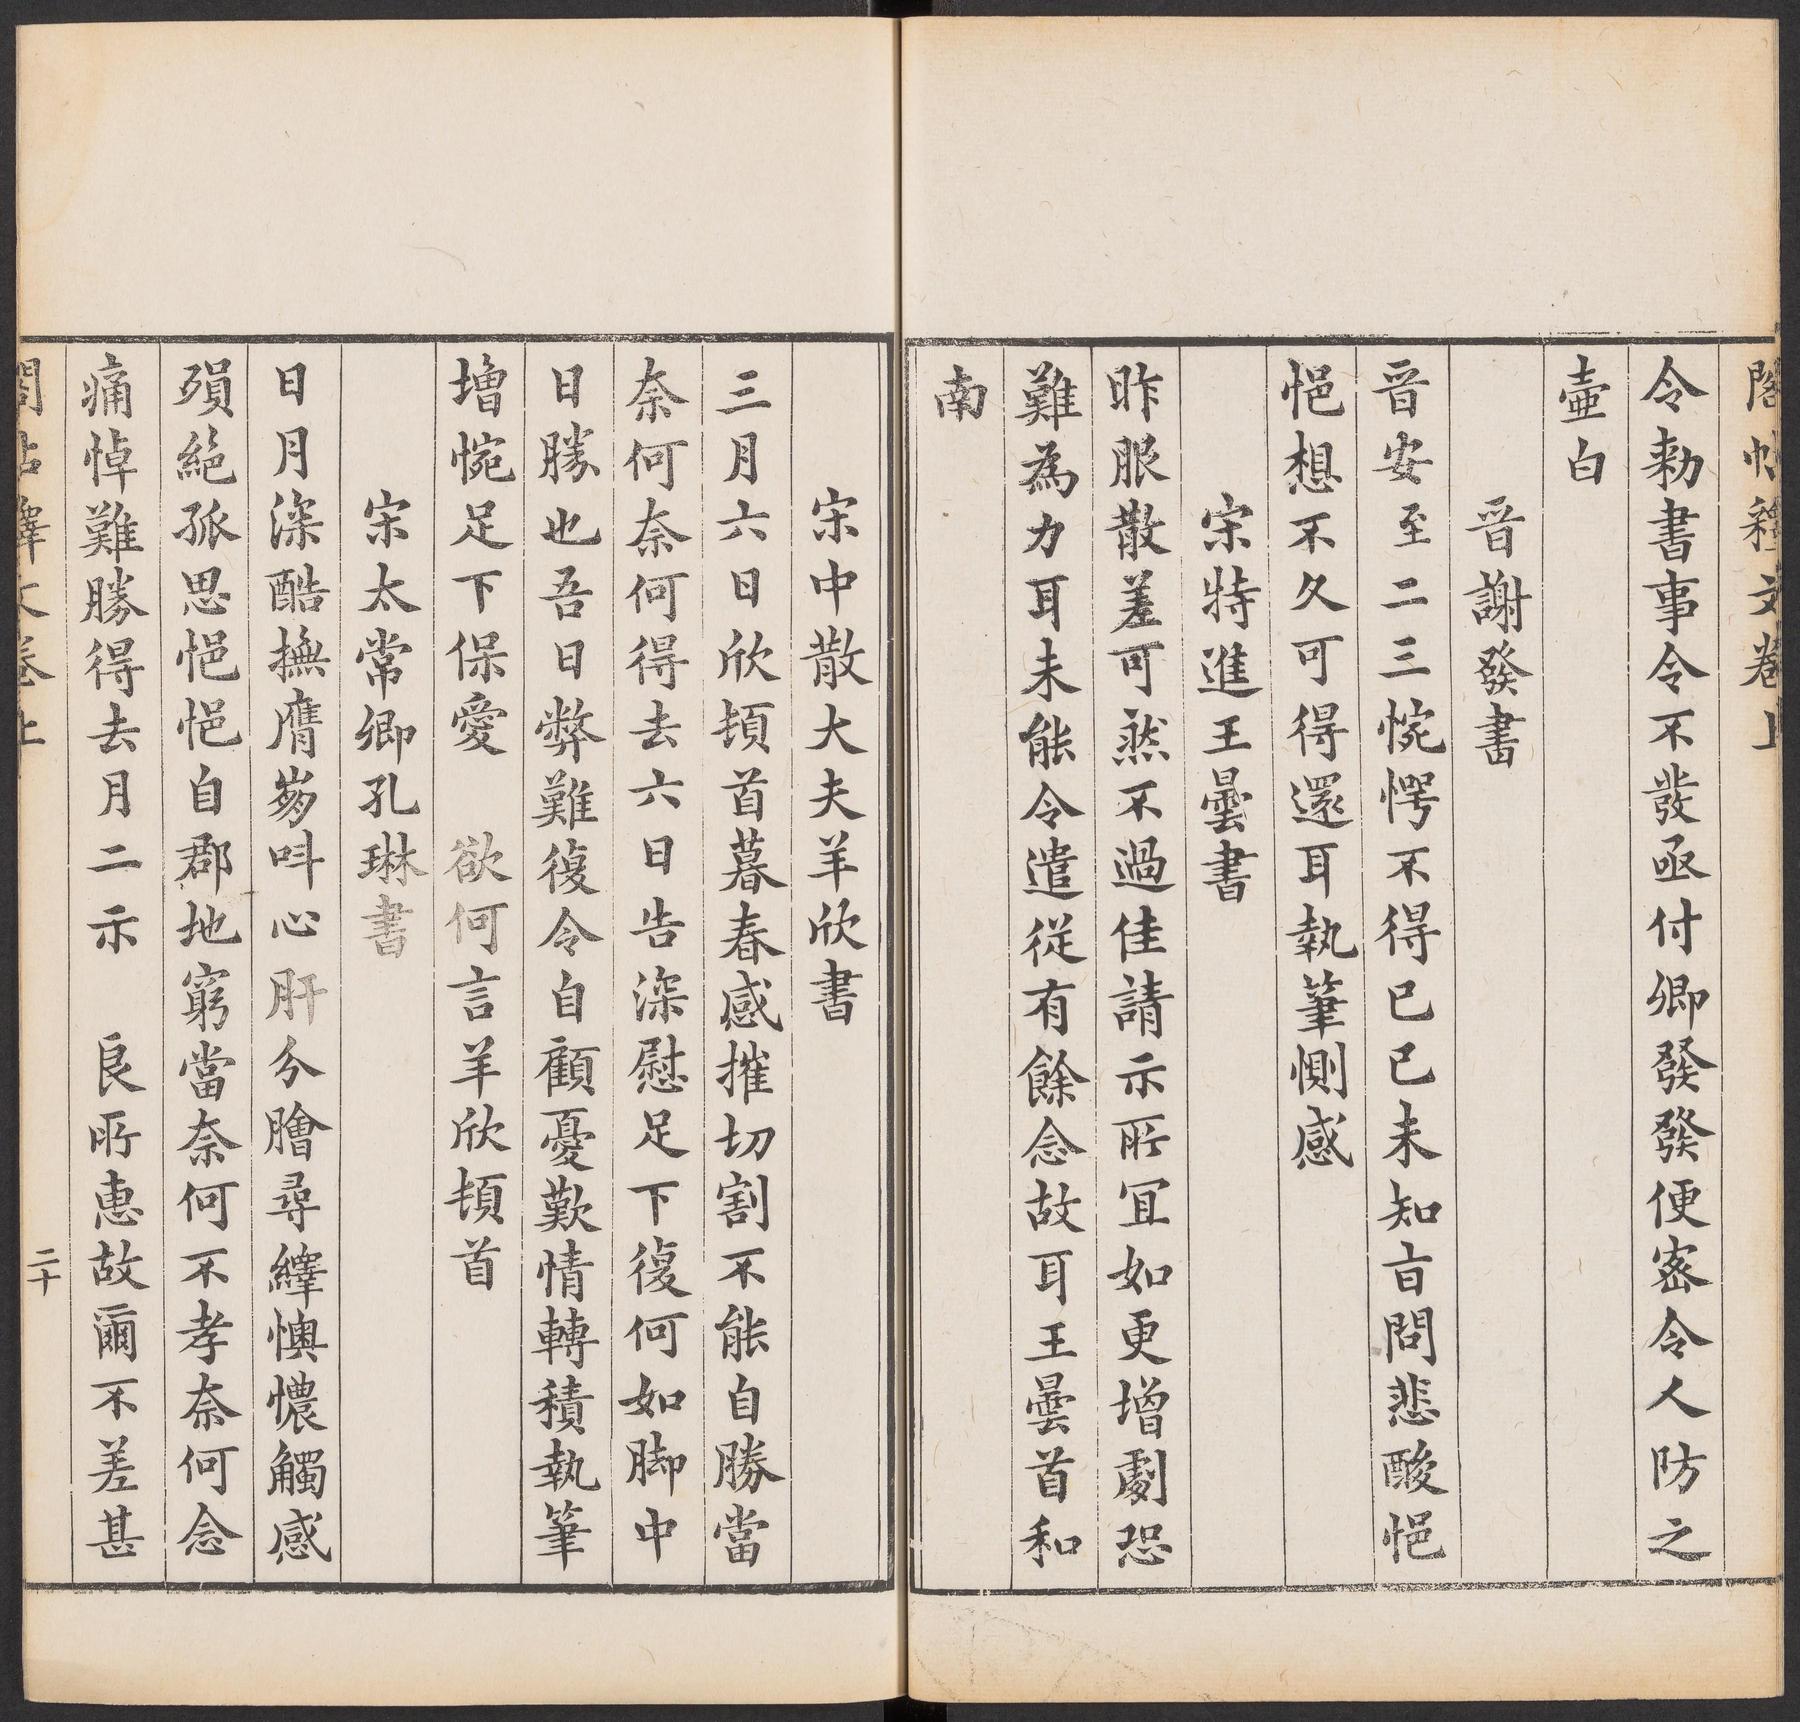 閣帖釋文卷上
令勑書事令不發亟付卿發發便密令人防之
壷白
晋謝發書
晋安至二三惋愕不得已已未知亩問悲酸悒
悒想不久可得還耳執筆惻感
宋特進王曇書
昨服散差可然不過佳請示所冝如更增劇恐
難為力耳未能令遣從有餘念故耳王曇首和
南
宋中散大夫羊欣書
三月六日欣頓首暮春感摧切割不能自勝當
奈何奈何得去六日告深慰足下復何如脚中
日勝也吾日弊難復令自顧憂歎情轉積執筆
增惋足下保愛 欲何言羊欣頓首
宋太常卿孔琳書
日月深酷撫膺崩呌心肝分膾尋繹懊憹觸感
殞絕孤思悒悒自郡地窮當奈何不孝奈何念
痛悼難勝得去月二示 良所惠故爾不差甚
閣帖釋文卷上
二十